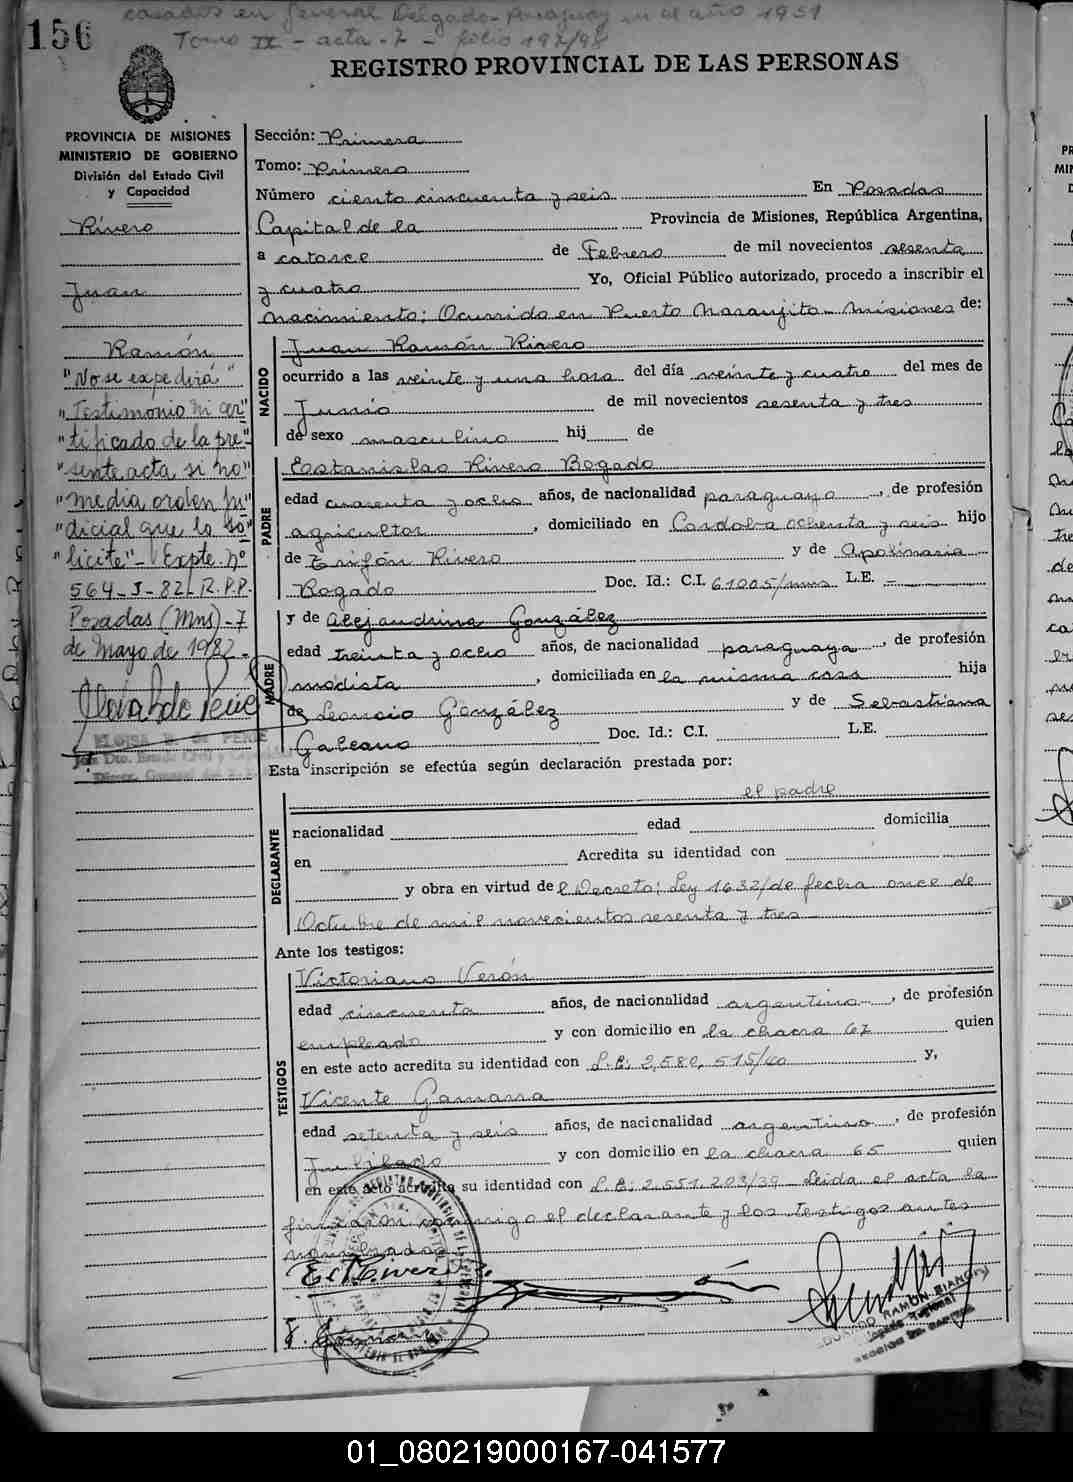 casados en General Delgado-Paraguay en el año 1951
156
Tomo II - acta - 7 - folio 197/98
REGISTRO PROVINCIAL DE LAS PERSONAS
PROVINCIA DE MISIONES
MINISTERIO DE GOBIERNO
División del Estado Civil
y Capacidad
Rivero
Juan
Ramón
"No se expedirá"
"Testimonio ni cer"
"tificado de la pre-"
"sente acta si no"
"media orden ju"
"dicial que lo so"
"licite" - Expte. Nº
564-J-82/R.P.P.
Posadas (Mns) - 7
de Mayo de 1982.-
ELOISA B. de PERIE
Sección: Primera
Tomo: Primero
Número ciento cincuenta y seis En Posadas
Capital de la Provincia de Misiones, República Argentina,
a catorce de Febrero de mil novecientos sesenta
y cuatro Yo, Oficial Público autorizado, procedo a inscribir el
nacimiento; Ocurrido en Puerto Naranjito - Misiones de:
NACIDO
Juan Ramón Rivero
ocurrido a las veinte y una hora del día veinte y cuatro del mes de
Junio de mil novecientos sesenta y tres
de sexo masculino hij de
PADRE
Estanislao Rivero Bogado
edad cuarenta y ocho años, de nacionalidad paraguayo, de profesión
agricultor, domiciliado en Cordoba ochenta y seis hijo
de Trifón Rivero y de Apolinaria
Bogado Doc. Id.: C.I. 61005/mns L.E. -
MADRE
y de Alejandrina González
edad treinta y ocho años, de nacionalidad paraguaya, de profesión
modista, domiciliada en la misma casa hija
de Leoncio González y de Sebastiana
Galeano Doc. Id.: C.I. L.E.
Esta inscripción se efectúa según declaración prestada por:
DECLARANTE
el padre
nacionalidad edad domicilia
en Acredita su identidad con
y obra en virtud de l Decreto; Ley 1632/de fecha once de
Octubre de mil novecientos sesenta y tres
Ante los testigos:
TESTIGOS
Victoriano Verón
edad cincuenta años, de nacionalidad argentino, de profesión
empleado y con domicilio en la chacra 67 quien
en este acto acredita su identidad con L.E: 2,580, 515/40 y,
Vicente Gamarra
edad setenta y seis años, de nacionalidad argentino, de profesión
Jubilado y con domicilio en la chacra 65 quien
en este acto acredita su identidad con L.E: 2.551.203/39 - Leida el acta la
firmaron conmigo el declarante y los testigos antes
nombrados
01_080219000167-041577